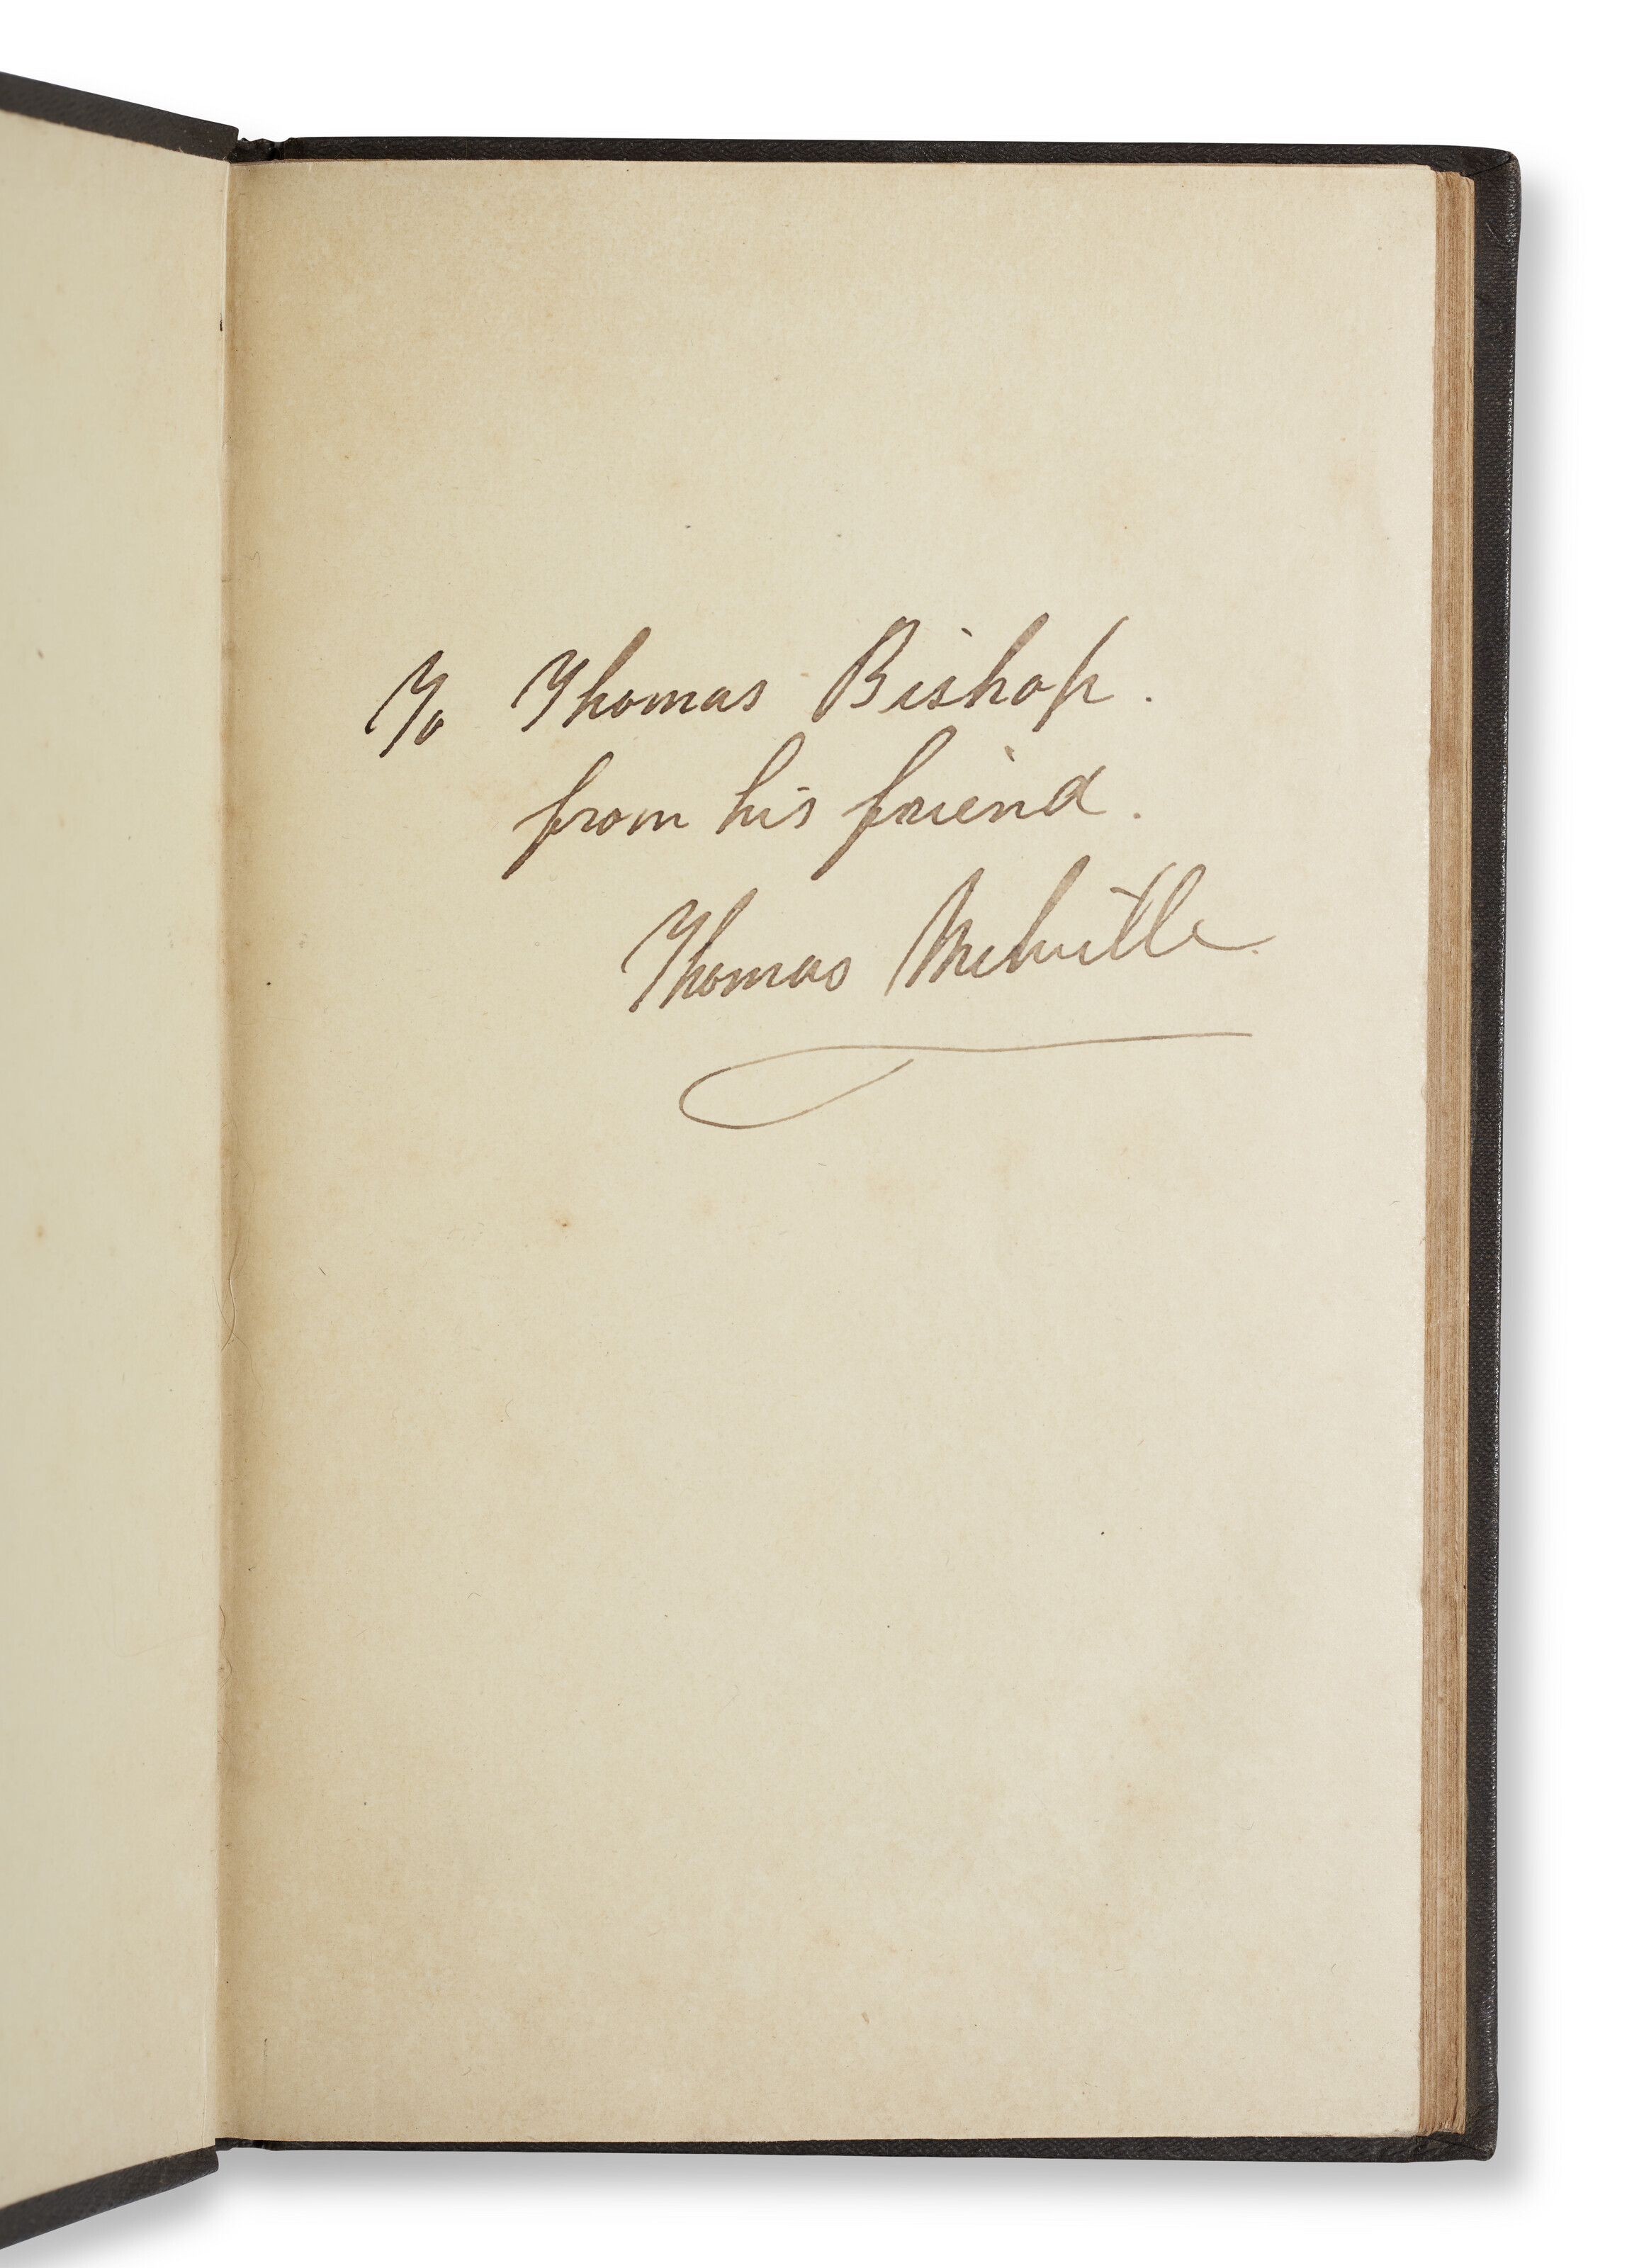 To Thomas Bishop.
from his friend.
Thomas Melville.